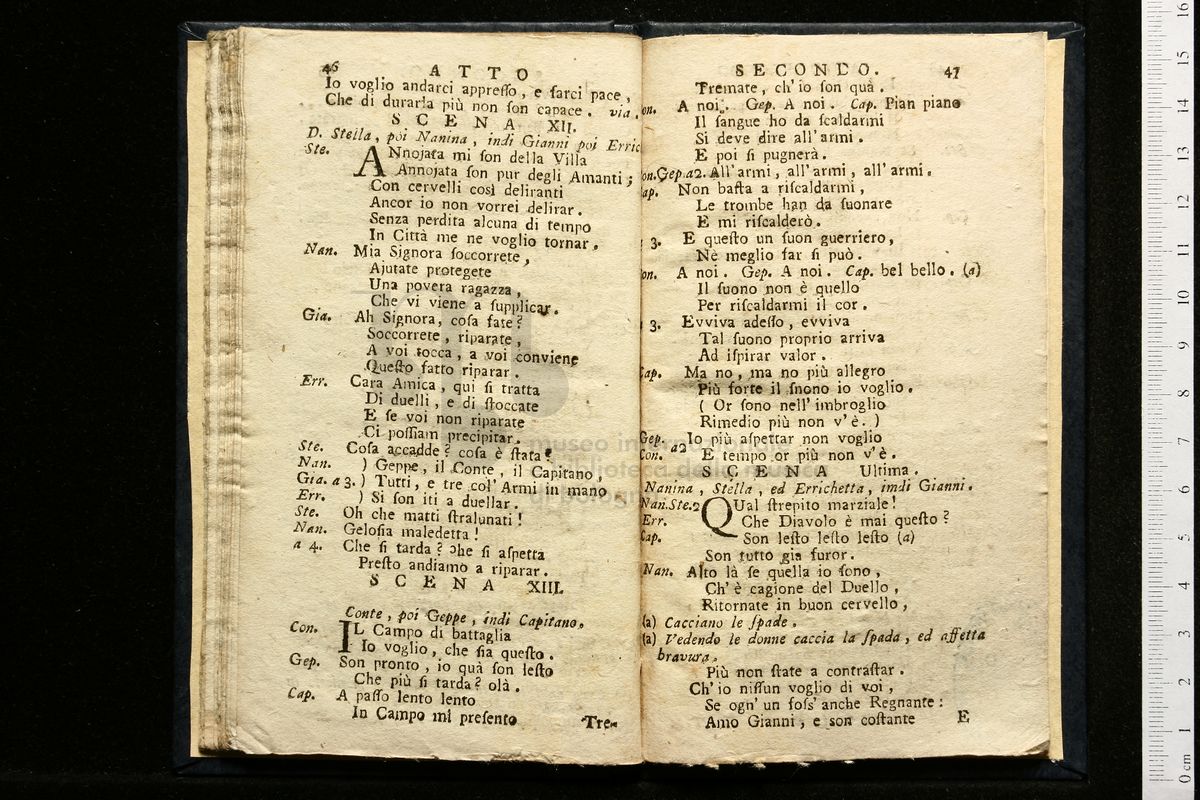 46 ATTO
Io voglio andarci appreſſo, e farci pace,
Che di durarla più non ſon capace. via.
SCENA XII.
D. Stella, poi Nanina, indi Gianni poi Erric
Ste. ANnojata mi ſon della Villa
Annojata ſon pur degli Amanti;
Con cervelli così deliranti
Ancor io non vorrei delirar.
Senza perdita alcuna di tempo
In Città me ne voglio tornar.
Nan. Mia Signora ſoccorrete,
Ajutate protegete
Una povera ragazza,
Che vi viene a ſupplicar.
Gia. Ah Signora, coſa fate?
Soccorrete, riparate,
A voi tocca, a voi conviene
Queſto fatto riparar.
Err. Cara Amica, qui ſi tratta
Di duelli, e di ſtoccate
E ſe voi non riparate
Ci poſſiam precipitar.
Ste. Coſa accadde? coſa è ſtata?
Nan. ) Geppe, il Conte, il Capitano,
Gia. a 3. ) Tutti, e tre col' Armi in mano
Err. ) Si ſon iti a duellar.
Ste. Oh che matti ſtralunati!
Nan. Geloſia maledetta!
a 4. Che ſi tarda? che ſi aſpetta
Preſto andiamo a riparar.
SCENA XIII.
Conte, poi Geppe, indi Capitano.
Con. IL Campo di battaglia
Io voglio, che ſia queſto.
Gep. Son pronto, io quà ſon leſto
Che più ſi tarda? olà.
Cap. A paſſo lento lento
In Campo mi preſento
Tre-
SECONDO. 47
Tremate, ch'io ſon quà.
on. A noi. Gep. A noi. Cap. Pian piano
Il ſangue ho da ſcaldarmi
Si deve dire all'armi.
E poi ſi pugnerà.
on. Gep. a2. All'armi, all'armi, all'armi.
ap. Non baſta a riſcaldarmi,
Le trombe han da ſuonare
E mi riſcalderò.
3. E queſto un ſuon guerriero,
Nè meglio far ſi può.
on. A noi. Gep. A noi. Cap. bel bello. (a)
Il ſuono non è quello
Per riſcaldarmi il cor.
3. Evviva adeſſo, evviva
Tal ſuono proprio arriva
Ad iſpirar valor.
Cap. Ma no, ma no più allegro
Più forte il ſnono io voglio.
( Or ſono nell' imbroglio
Rimedio più non v'è. )
Gep. a2 Io più aſpettar non voglio
Con. E tempo or più non v'è.
SCENA Ultima.
Nanina, Stella, ed Errichetta, imdi Gianni.
Nan. Ste. 2 QUal ſtrepito marziale!
Err. Che Diavolo è mai queſto?
Cap. Son leſto leſto leſto (a)
Son tutto gia furor.
Nan. Alto là ſe quella io ſono,
Ch' è cagione del Duello,
Ritornate in buon cervello,
(a) Cacciano le ſpade.
(a) Vedendo le donne caccia la ſpada, ed affetta
bravura.
Più non ſtate a contraſtar.
Ch' io niſſun voglio di voi,
Se ogn' un foſs' anche Regnante:
Amo Gianni, e son coſtante E
museo internazionale
biblioteca della musica
di bologna
0 cm 1 2 3 4 5 6 7 8 9 10 11 12 13 14 15 16